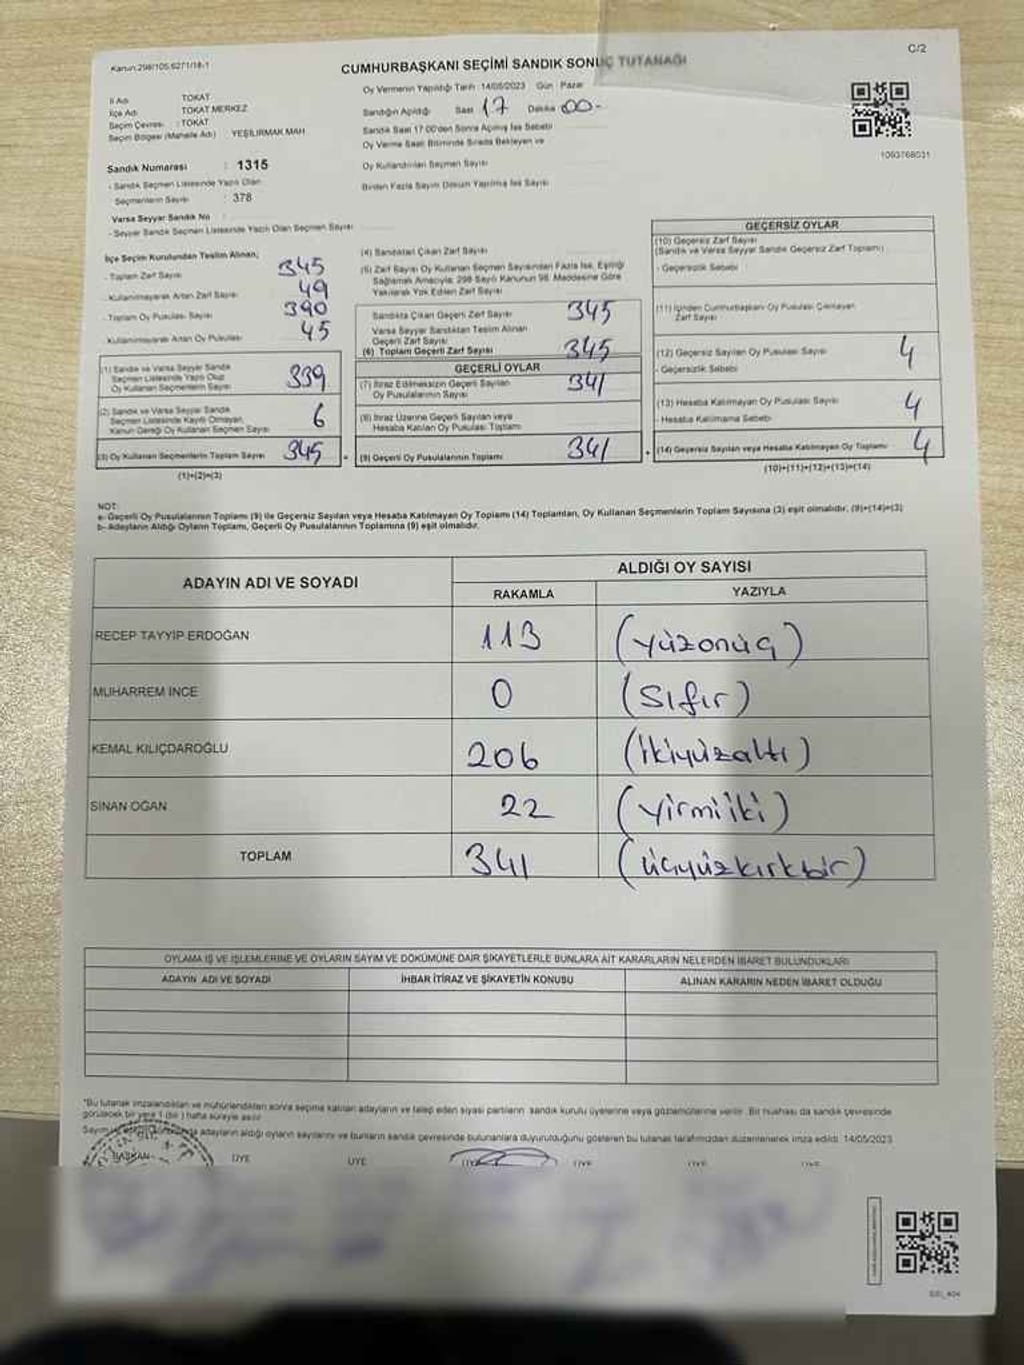 Kanun:298/105,6271/18-1
C/2
CUMHURBAŞKANI SEÇİMİ SANDIK SONUÇ TUTANAĞI
İl Adı : TOKAT
İlçe Adı : TOKAT MERKEZ
Seçim Çevresi : TOKAT
Seçim Bölgesi (Mahalle Adı) : YEŞİLIRMAK MAH
Oy Vermenin Yapıldığı Tarih :14/05/2023 Gün : Pazar
Sandığın Açıldığı Saat 17 Dakika 00-
Sandık Saat 17:00'den Sonra Açılmış İse Sebebi
Oy Verme Saati Bitiminde Sırada Bekleyen ve
Oy Kullandırılan Seçmen Sayısı
Birden Fazla Sayım Döküm Yapılmış İse Sayısı
1093768031
Sandık Numarası : 1315
- Sandık Seçmen Listesinde Yazılı Olan
Seçmenlerin Sayısı : 378
Varsa Seyyar Sandık No :
- Seyyar Sandık Seçmen Listesinde Yazılı Olan Seçmen Sayısı
İlçe Seçim Kurulundan Teslim Alınan;
- Toplam Zarf Sayısı 345
- Kullanılmayarak Artan Zarf Sayısı 49
- Toplam Oy Pusulası Sayısı 390
Kullanılmayarak Artan Oy Pusulası 45
(1) Sandık ve Varsa Seyyar Sandık
Seçmen Listesinde Yazılı Olup
Oy Kullanan Seçmenlerin Sayısı 339
(2) Sandık ve Varsa Seyyar Sandık
Seçmen Listesinde Kayıtlı Olmayan,
Kanun Gereği Oy Kullanan Seçmen Sayısı 6
(3) Oy Kullanan Seçmenlerin Toplam Sayısı 345
(1)+(2)=(3)
(4) Sandıktan Çıkan Zarf Sayısı
(5) Zarf Sayısı Oy Kullanan Seçmen Sayısından Fazla İse, Eşitliği
Sağlamak Amacıyla; 298 Sayılı Kanunun 98. Maddesine Göre
Yakılarak Yok Edilen Zarf Sayısı
Sandıkta Çıkan Geçerli Zarf Sayısı 345
Varsa Seyyar Sandıktan Teslim Alınan
Geçerli Zarf Sayısı
(6) Toplam Geçerli Zarf Sayısı 345
GEÇERLİ OYLAR
(7) İtiraz Edilmeksizin Geçerli Sayılan
Oy Pusulalarının Sayısı 341
(8) İtiraz Üzerine Geçerli Sayılan veya
Hesaba Katılan Oy Pusulası Toplamı
(9) Geçerli Oy Pusulalarının Toplamı 341
GEÇERSİZ OYLAR
(10) Geçersiz Zarf Sayısı
(Sandık ve Varsa Seyyar Sandık Geçersiz Zarf Toplamı)
- Geçersizlik Sebebi
(11) İçinden Cumhurbaşkanı Oy Pusulası Çıkmayan
Zarf Sayısı
(12) Geçersiz Sayılan Oy Pusulası Sayısı 4
- Geçersizlik Sebebi
(13) Hesaba Katılmayan Oy Pusulası Sayısı 4
- Hesaba Katılmama Sebebi
(14) Geçersiz Sayılan veya Hesaba Katılmayan Oy Toplamı 4
(10)+(11)+(12)+(13)=(14)
NOT:
a- Geçerli Oy Pusulalarının Toplamı (9) ile Geçersiz Sayılan veya Hesaba Katılmayan Oy Toplamı (14) Toplamları, Oy Kullanan Seçmenlerin Toplam Sayısına (3) eşit olmalıdır. (9)+(14)=(3)
b- Adayların Aldığı Oyların Toplamı, Geçerli Oy Pusulalarının Toplamına (9) eşit olmalıdır.
ADAYIN ADI VE SOYADI
ALDIĞI OY SAYISI
RAKAMLA YAZIYLA
RECEP TAYYİP ERDOĞAN 113 (yüzonüç)
MUHARREM İNCE 0 (Sıfır)
KEMAL KILIÇDAROĞLU 206 (İkiyüzaltı)
SİNAN OĞAN 22 (yirmiiki)
TOPLAM 341 (üçyüzkırkbir)
OYLAMA İŞ VE İŞLEMLERİNE VE OYLARIN SAYIM VE DÖKÜMÜNE DAİR ŞİKAYETLERLE BUNLARA AİT KARARLARIN NELERDEN İBARET BULUNDUKLARI
ADAYIN ADI VE SOYADI İHBAR İTİRAZ VE ŞİKAYETİN KONUSU ALINAN KARARIN NEDEN İBARET OLDUĞU
*Bu tutanak imzalandıktan ve mühürlendikten sonra seçime katılan adayların ve talep eden siyasi partilerin sandık kurulu üyelerine veya gözlemcilerine verilir. Bir nüshası da sandık çevresinde
görülecek bir yere 1 (bir) hafta süreyle asılır.
adayların aldığı oyların sayılarını ve bunların sandık çevresinde bulunanlara duyurulduğunu gösteren bu tutanak tarafımızdan düzenlenerek imza edildi. 14/05/2023
BAŞKAN ÜYE ÜYE ÜYE ÜYE ÜYE ÜYE